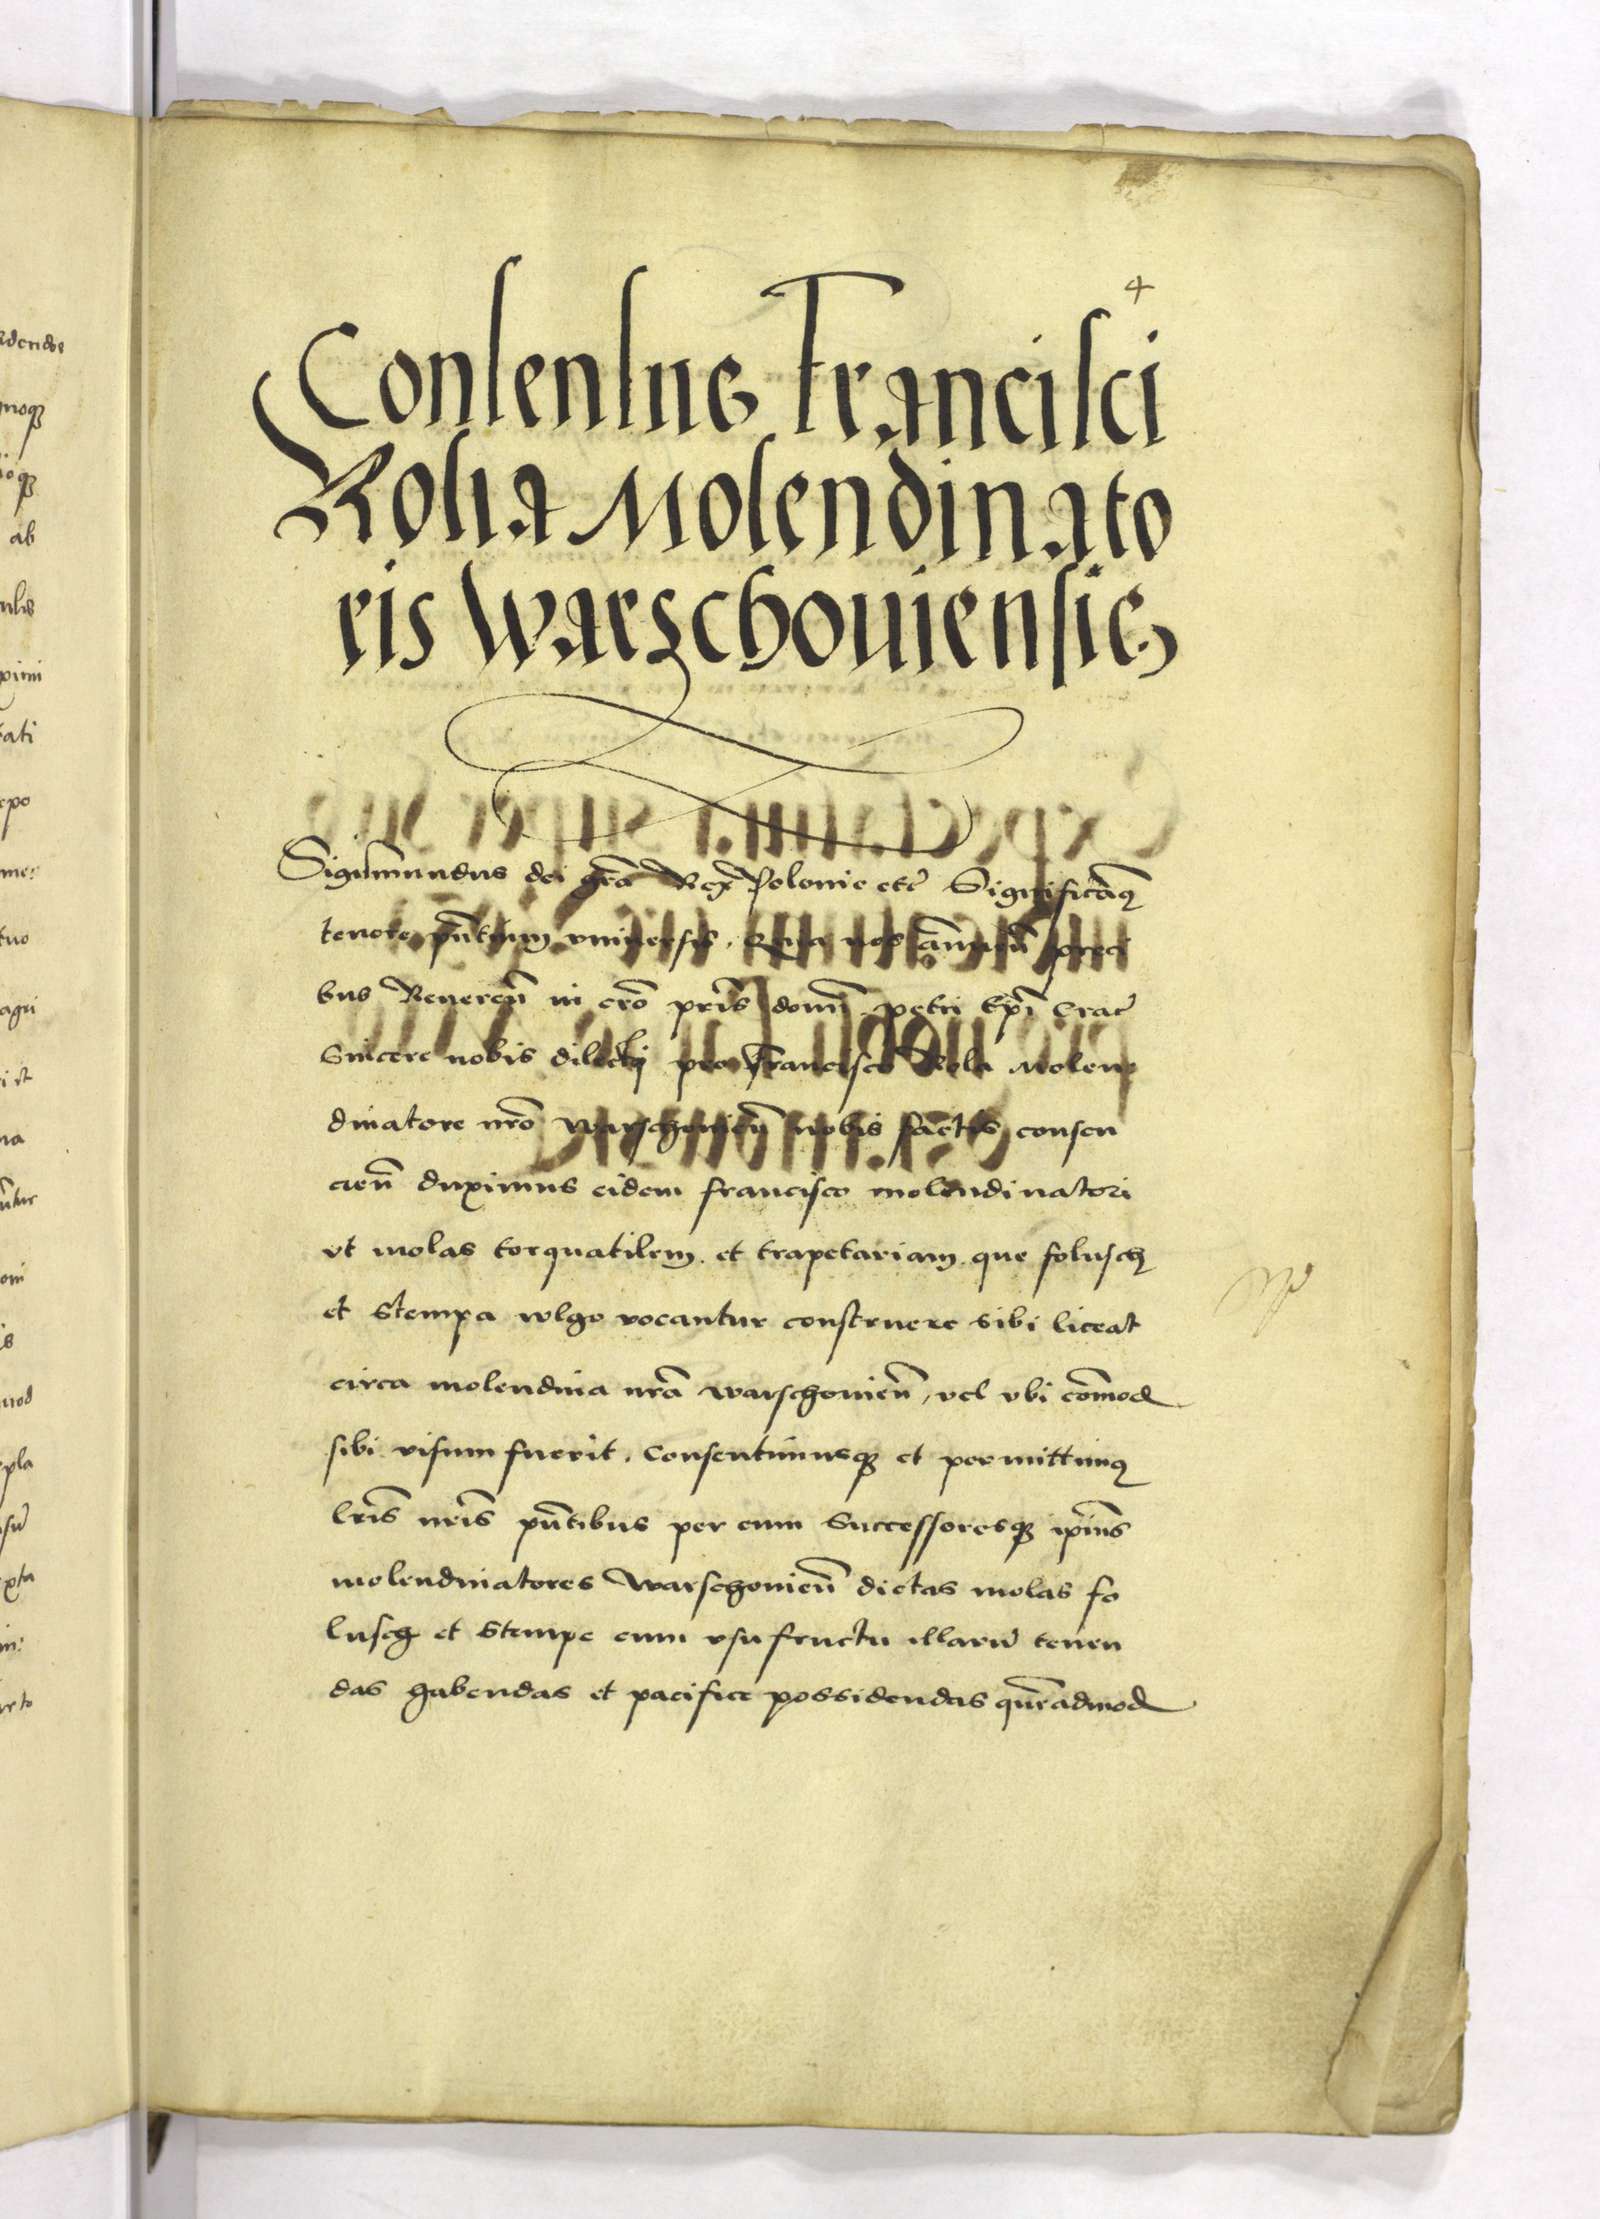 4
Consensus Francisci
Rolya Molendinato
ris Warschouiensis
Sigismundus dei gra Rex Polonie etc Significamus
tenore pntium vniuersis. Quia nos annuen preci
bus Reueren in cro pris domi petri Epi Crac
Sincere nobis dilecti pro Francisco Rola Molen
dinatore nro Warschouien nobis factis consen
cien duximus eidem francisco molendinatori
vt molas torquatilem et trapetariam que folusch
et Stempa wlgo vocantur construere sibi liceat
circa molendina nra warschouien, vel vbi comod
sibi visum fuerit. Consentimusque et permittimus
lris nris pntibus per eum Successoresque ipius
molendinatores Warschouien dictas molas fo
lusch et Stempe cum vsufructu illaru tenen
das habendas et pacifice possidendas quemadmod